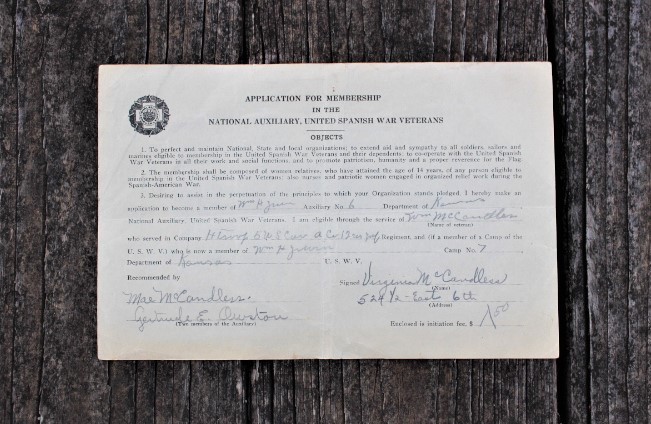 APPLICATION FOR MEMBERSHIP
IN THE
NATIONAL AUXILIARY, UNITED SPANISH WAR VETERANS
OBJECTS
1. To perfect and maintain National, State and local organizations; to extend aid and sympathy to all soldiers, sailors and
marines eligible to membership in the United Spanish War Veterans and their dependents; to co-operate with the United Spanish
War Veterans in all their work and social functions, and to promote patriotism, humanity and a proper reverence for the Flag.
2. The membership shall be composed of women relatives, who have attained the age of 14 years, of any person eligible to
membership in the United Spanish War Veterans; also nurses and patriotic women engaged in organized relief work during the
Spanish-American War.
3. Desiring to assist in the perpetuation of the principles to which your Organization stands pledged, I hereby make an
application to become a member of Wm H Auxiliary No. 6 Department of Kansas
National Auxiliary, United Spanish War Veterans. I am eligible through the service of Tom McCandless
(Name of veteran)
who served in Company H troop 5 U S Cav A Co. Regiment, and (if a member of a Camp of the
U. S. W. V.) who is now a member of Wm H Camp No. 7
Department of Kansas U. S. W. V.
Recommended by
Signed Virginia McCandless
(Name)
Mae McCandless.
524 1/2 - East 6th
(Address)
Gertrude E.
(Two members of the Auxiliary)
Enclosed is initiation fee, $ 1.50